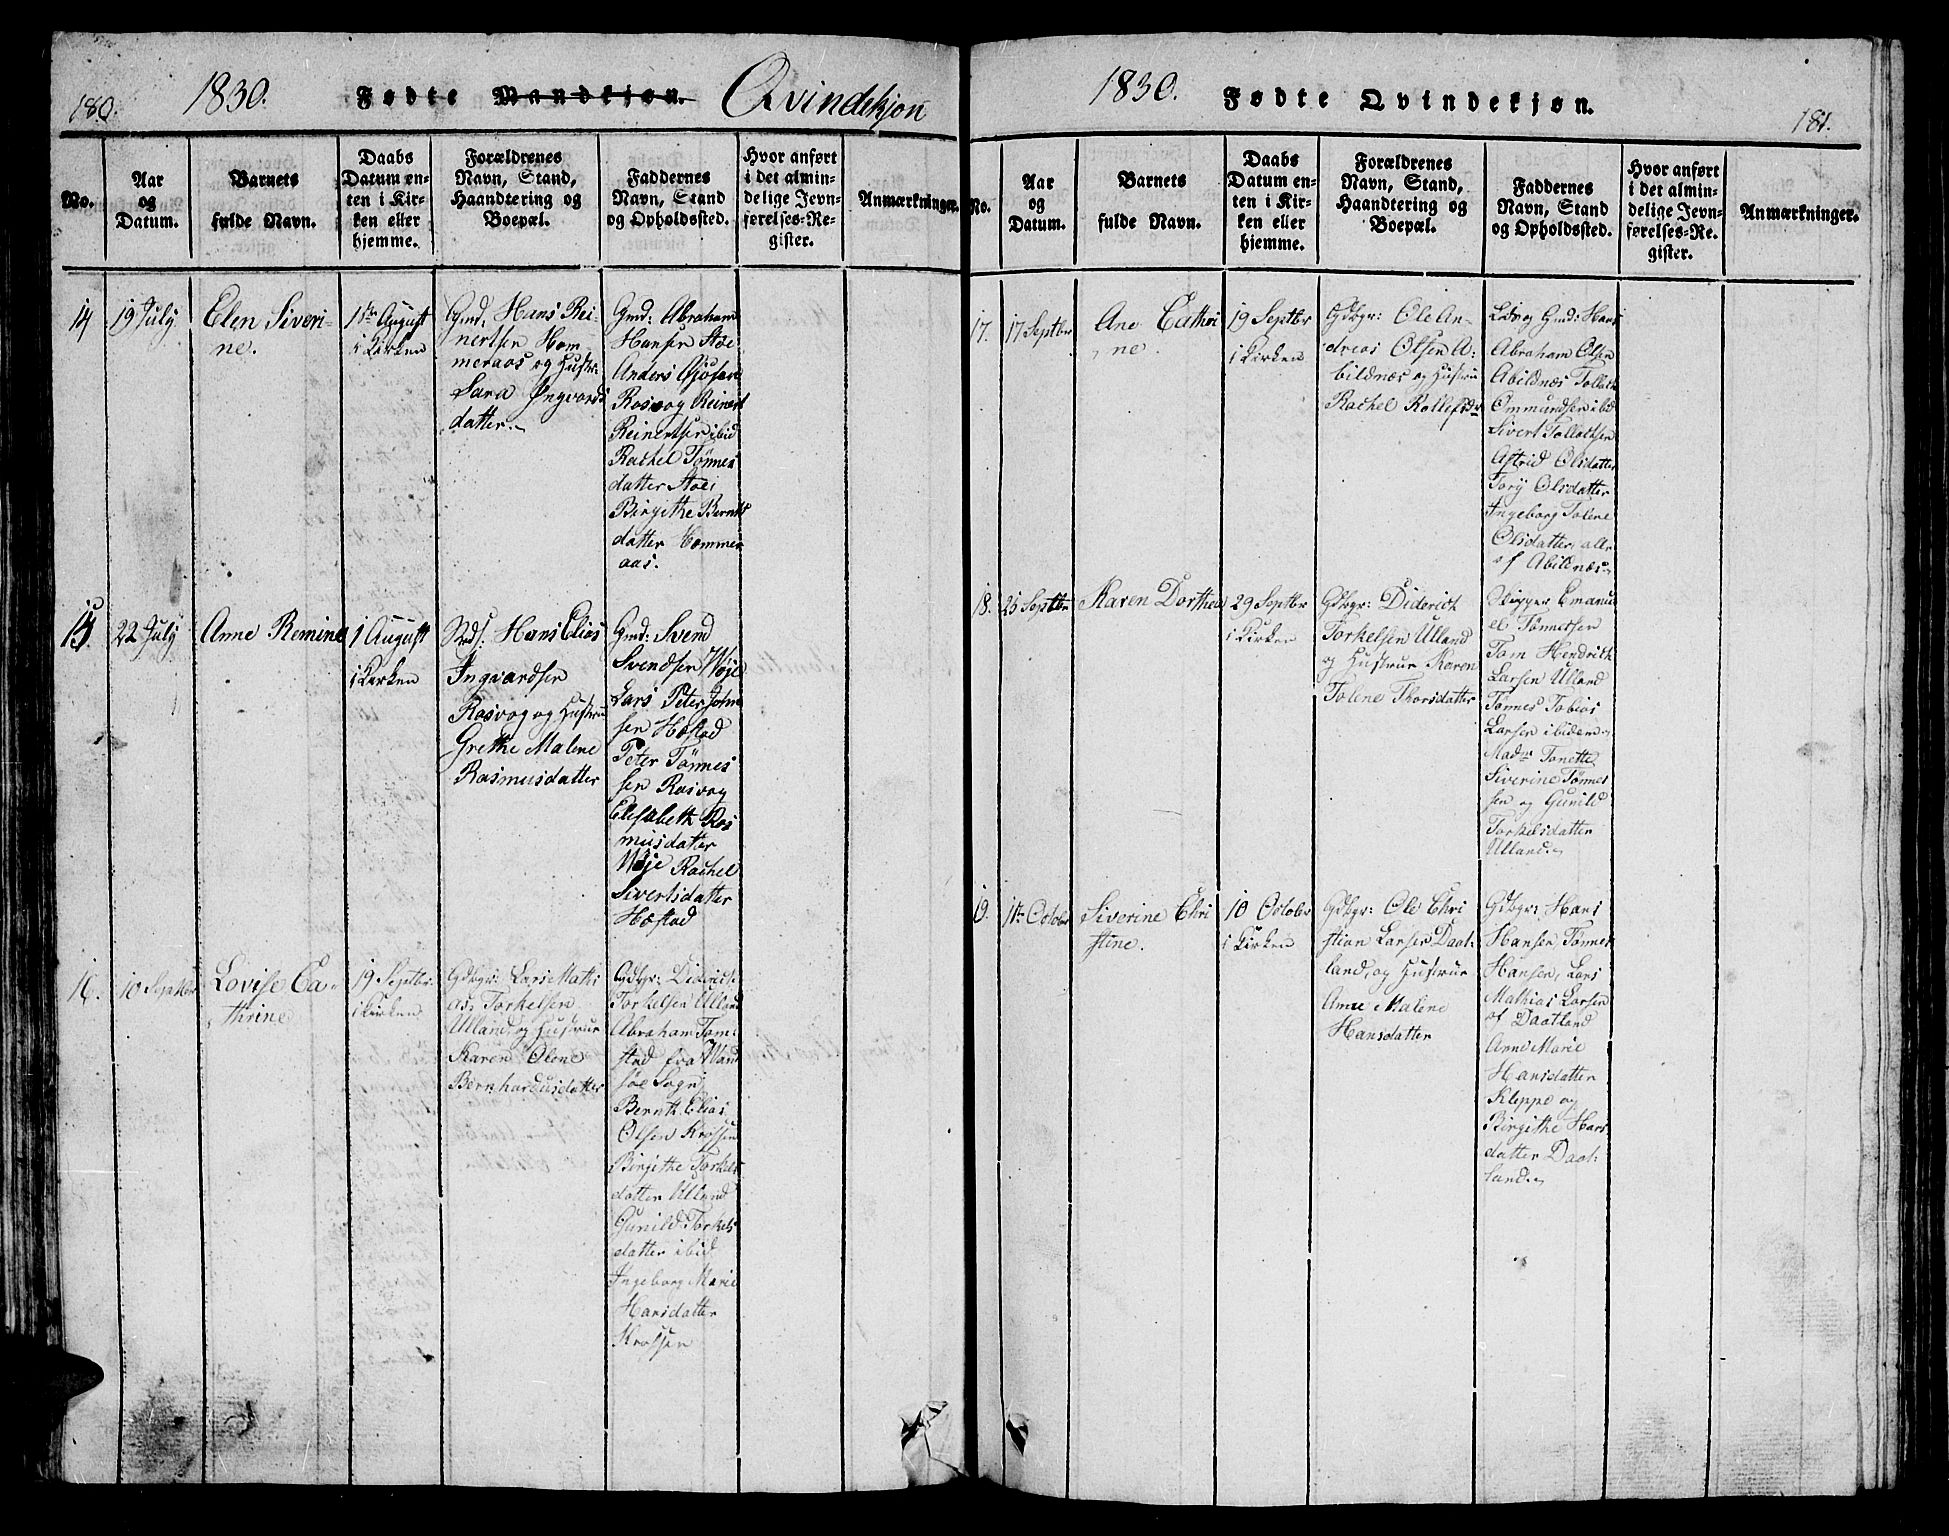 180.
1830.
Fødte Mandkjøn. Qvindekjøn
No.
Aar
og
Datum.
Barnets
fulde Navn.
Daabs
Datum en-
ten i Kir-
ken eller
hjemme.
Forældrenes
Navn, Stand,
Haandtering og
Boepæl.
Faddernes
Navn, Stand
og Opholdssted.
Hvor anført
i det almin-
delige Jevn-
førelses-Re-
gister.
Anmærkninger.
14
19 July
Elen Siveri-
ne.
1ste August
i Kirken
Gmd: Hans Rei-
nertsen Hom-
meraas og Hustr:
Sara Ingvards
datter.
Gmd: Abraham
Hansen Stoe
Anders
Rosvog Reinert
Reinertsen ibid
Rachel Tønnes
datter Stoei
Birgithe Bernts
datter Commer
aas.
15.
22 July
Anne Remine
1 August
i Kirken
Hans Elias
Ingvardsen
Rosvog og Hustru
Grethe Malene
Rasmusdatter
Gmd: Svend
Svendsen Wøje
Lars Peter John
sen Hæstad
Peter Tønnes
sen Rosvog
Elisabeth Ras
musdatter
Wøje Rachel
Sivertsdatter
Hæstad
16.
10 Septbr
Lovise Ca-
thrine
19 Septbr:
i Kirken
Gdbgr: Lars Mathi
as Torkelsen
Ulland, og Hustrue
Karen Olene
Bernhardusdatter
Gdbgr: Diderict
Torkelsen Ulland
Abraham Tom-
stad fra Wand
søe Sogn
Bernth Elias
Olsen Krossen
Birgithe Torkels
datter Ulland
Gunild Torkels
datter ibid
Ingeborg Marie
Hansdatter
Krossen
1830.
Fødte Qvindekjøn.
181.
No.
Aar
og
Datum.
Barnets
fulde Navn.
Daabs
Datum en-
ten i Kir-
ken eller
hjemme.
Forældrenes
Navn, Stand,
Haandtering og
Boepæl.
Faddernes
Navn, Stand
og Opholdssted.
Hvor anført
i det almin-
delige Jevn-
førelses-Re-
gister.
Anmærkninger.
17.
17 Septbr
Ane Cathri
ne.
19 Septbr
i Kirken
Gdbgr: Ole An-
dreas Olsen A-
bildnæs og Hustru
Rachel Rollefsdr
og Gmd: Hans
Abraham Olsen
Abildnæs Tollath
Ommundsen ibid
Sivert Tollathsen
Astrid Olsdatter
Torij Olsdatter
Ingeborg Tolene
Olsdatter, alle
af Abildnæs
18.
25 Septbr
Karen Dorthea
29 Septbr
i Kirken
Gdbgr: Diderich
Torkelsen Ulland
og Hustrue Karen
Tolene Thorsdatter
Skipper Emanu
el Tønnessen
Tom Hendrich
Larsen Ulland
Tønnes Tobias
Larsen ibidem
Madm Tonette
Siverine Tønnes
sen og Gunild
Torkelsdatter
Ulland
19.
1ste Octobr
Siverine Chri
stine.
10 Octobr
i Kirken
Gdbgr: Ole Chri
stian Larsen Daat-
land, og Hustrue
Anne Malene
Hansdatter
Gdbgr: Hans
Hansen, Tønnes
Hansen, Lars
Mathias Larsen
af Daatland
Anne Marie
Hansdatter
Kleppe og
Birgithe Hans
datter Daat-
land